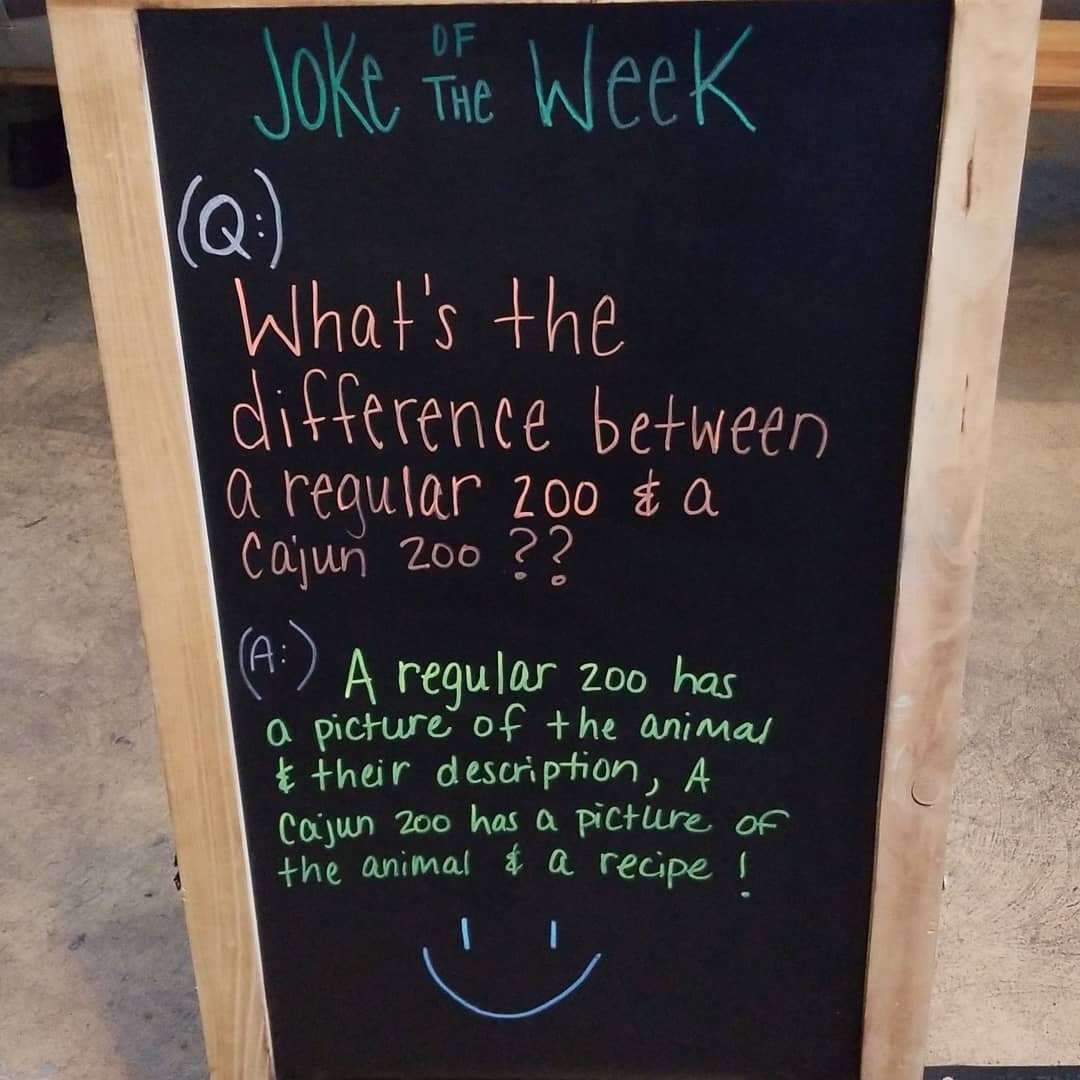 JOKe OF THe WeeK
(Q:)
What's the
difference between
a regular zoo & a
Cajun zoo ??
(A:) A regular zoo has
a picture of the animal
& their description, A
Cajun zoo has a picture of
the animal & a recipe !